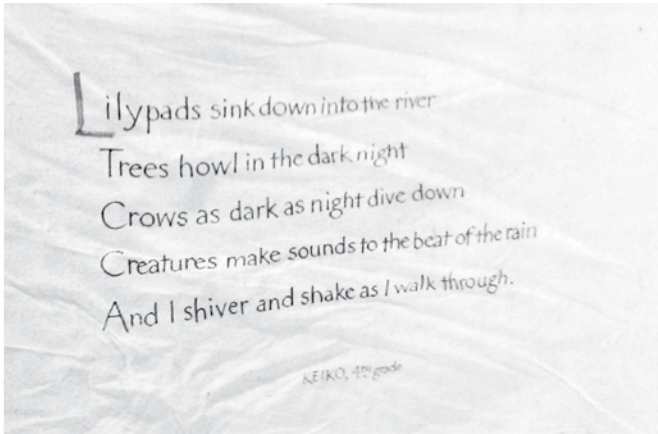 Lilypads sink down into the river
Trees howl in the dark night
Crows as dark as night dive down
Creatures make sounds to the beat of the rain
And I shiver and shake as I walk through.
KEIKO, 4th grade